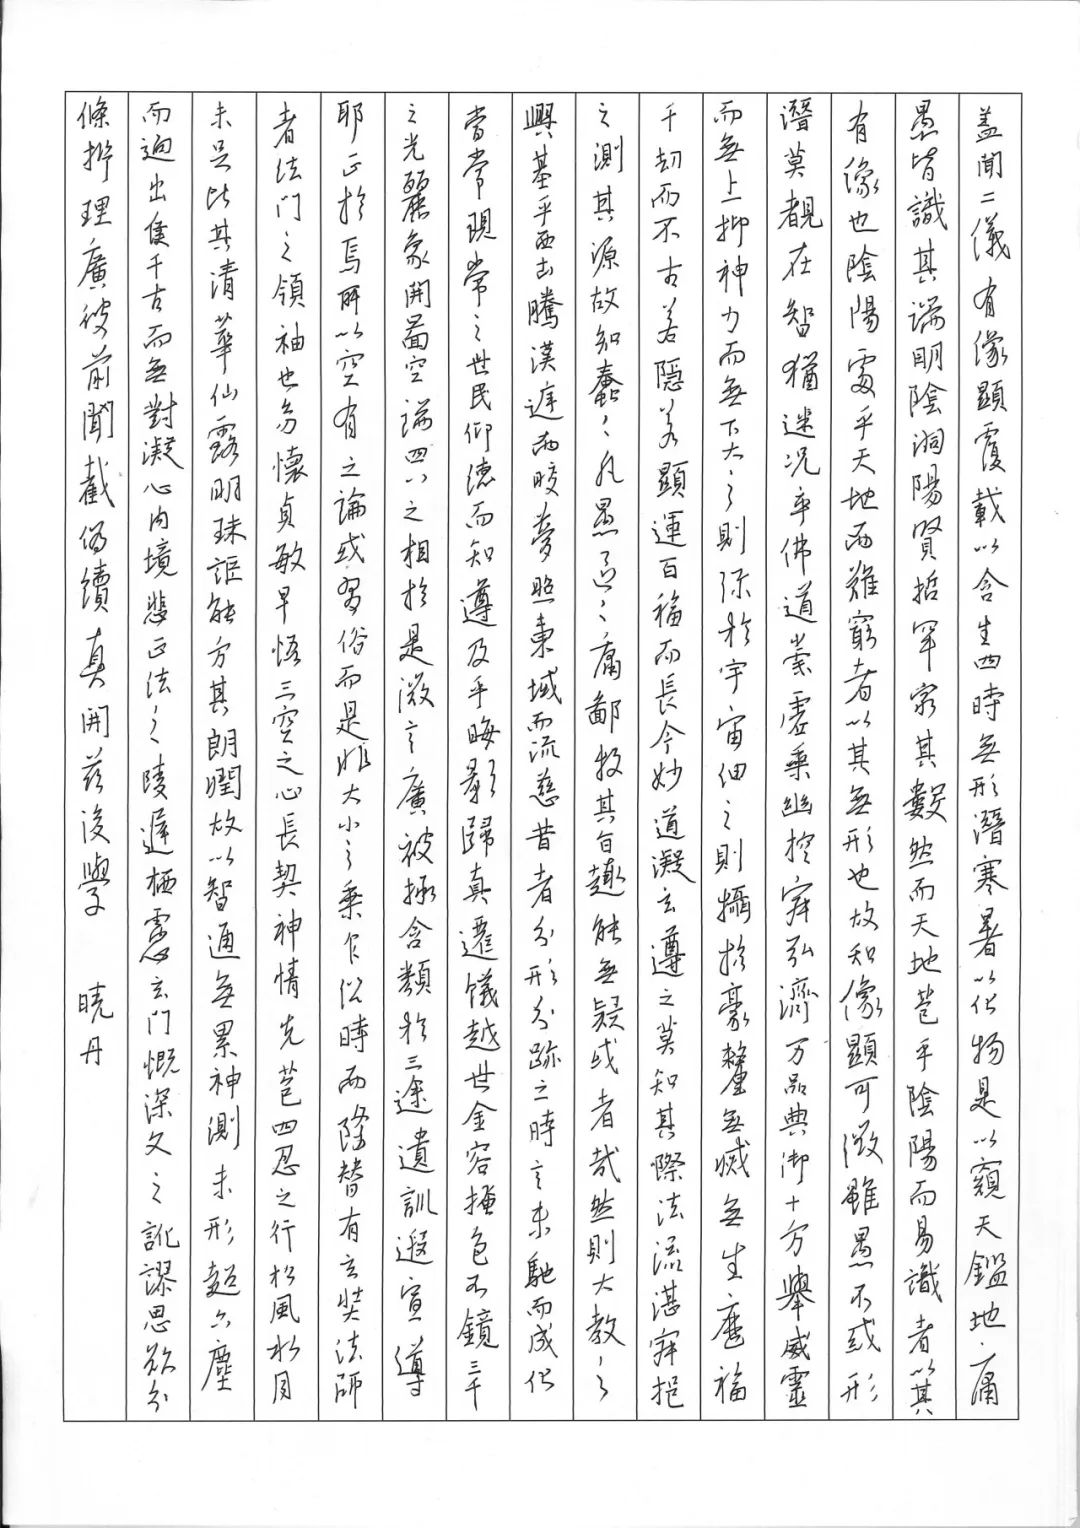 盖聞二儀有像顯覆載以含生四時無形潛寒暑以化物是以窺天鑑地庸
愚皆識其端明陰洞陽賢哲罕窮其數然而天地苞乎陰陽而易識者以其
有像也陰陽處乎天地而難窮者以其無形也故知像顯可徵雖愚不惑形
潛莫覩在智猶迷况乎佛道崇虛乘幽控寂弘濟万品典御十方舉威靈
而無上抑神力而無下大之則弥於宇宙細之則攝於豪釐無滅無生歷福
千劫而不古若隱若顯運百福而長今妙道凝玄遵之莫知其際法流湛寂挹
之測其源故知蠢〻凡愚區〻庸鄙投其旨趣能無疑或者哉然則大教之
興基乎西土騰漢庭而皎夢照東域而流慈昔者分形分跡之時言未馳而成化
當常現常之世民仰德而知遵及乎晦影歸真遷儀越世金容掩色不鏡三千
之光麗象開圖空端四八之相於是微言廣被拯含類於三途遺訓遐宣導
耶正於焉所以空有之論或習俗而是非大小之乘乍㳂時而隆替有玄奘法師
者法門之領袖也㓜懷貞敏早悟三空之心長契神情先苞四忍之行松風水月
未足比其清華仙露明珠詎能方其朗潤故以智通無累神測未形超六塵
而迥出隻千古而無對凝心内境悲正法之陵遲栖慮玄門慨深文之訛謬思欲分
條析理廣彼前聞截偽續真開茲後學 曉丹